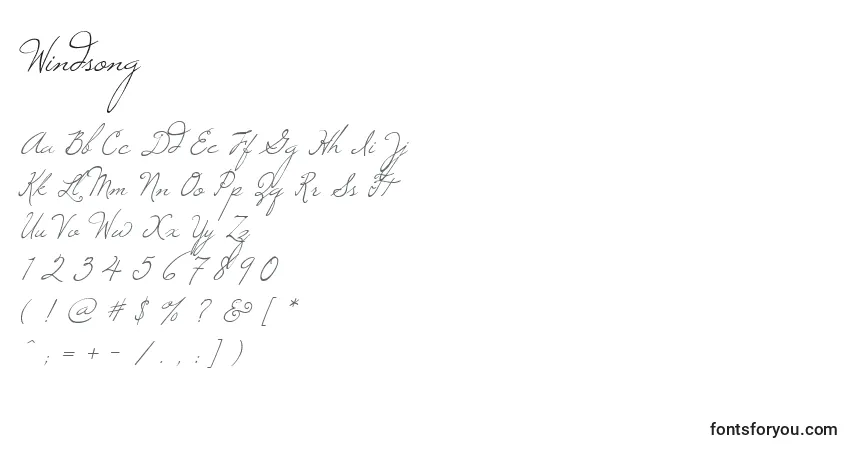 Windsong
Aa Bb Cc Dd Ee Ff Gg Hh Ii Jj
Kk Ll Mm Nn Oo Pp Qq Rr Ss Tt
Uu Vv Ww Xx Yy Zz
1 2 3 4 5 6 7 8 9 0
( ! @ # $ % ? & [ *
^ ; = + - / . , : ] )
fontsforyou.com